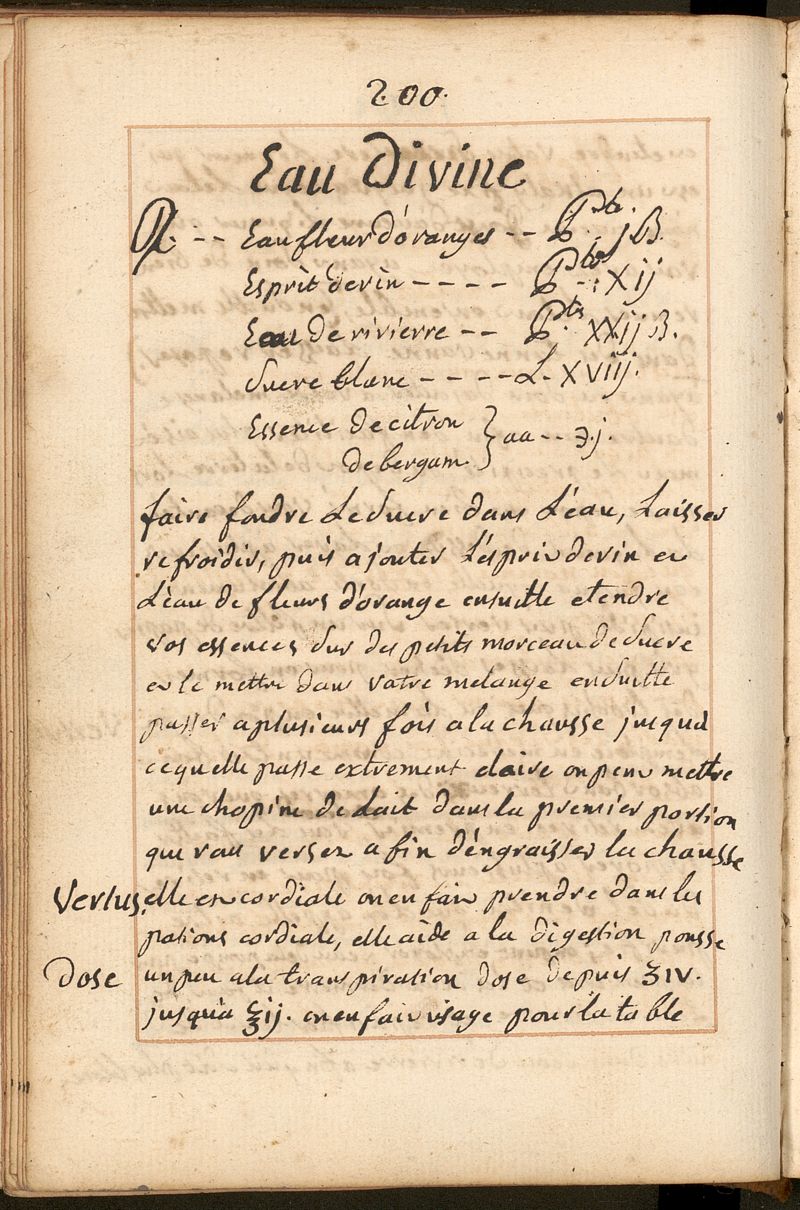 200.
Eau Divine
℞. -- Eau fleur d'oranges -- Pte. j ß.
Esprit de vin ---- Pte : Xij
Eau de rivierre -- Ptes XXij ß.
Sucre blanc ---- L. XViij.
Essence de citron } aa -- ℈.j.
de bergam
faire fondre le Sucre dans l'éau, laisser
refroidir, puis ajouter l'ésprit de vin et
L'éau de fleurs d'orange ensuitte etendre
vos essences sur des petits morceau de Sucre
et le mettre dans vatre melange ensuitte
passer a plusieurs fois a la chausse jusqua
ce quelle passe extrement claire on peut mettre
une chopine de lait dans la premier portion
que vou versez afin d'éngraisser la chausse
Vertus. elle est cordiale on en fait prendre dans les
potions cordiale, elle aide a la digestion pousse
Dose un peu a la transpiration dose depuis ʒiv.
jusqu'a ℥ij. on en fait usage pour la table